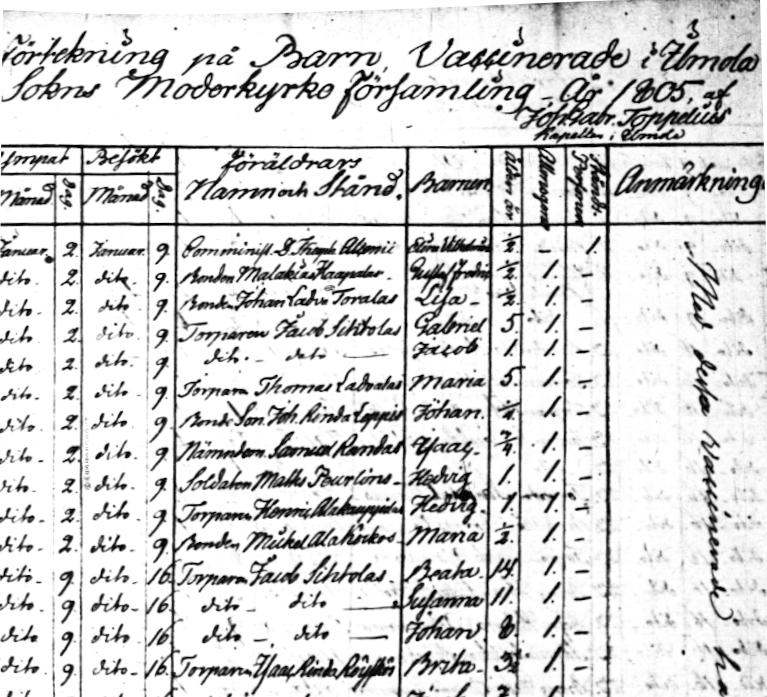 Förtekning på Barn, Vaccinerade i Ilmola
Sokns Moderkyrko församling År 1805, af
Joh: Gabr. Toppelius
Kapellan i Ilmola
Ympat Besökt föräldrars Namn och Stånd. Barnen Ålder år Allmogens Stånds Personer Anmärkning
Månad Dag. Månad Dag.
Januar. 2. Januar. 9. Comminist. D. ½ - 1.
dito. 2. dito. 9. Bonden Malakias Kaapalas ½ 1. -
dito. 2. dito 9. Bonden Johan Toralas Lisa - ½ 1. -
dito. 2. dito. 9. Torparen Jacob Sihtolas Gabriel 5. 1. -
dito. 2. dito. 9. dito. - dito - Jacob 1. 1. -
dito. 2. dito. 9. Torparen Thomas Ladvalas Maria 5. 1. -
dito. 2. dito. 9. Bonde Son. Joh. Rinda Johan. ¼ 1. -
dito. 2. dito. 9. Nämndem. Samuel Randas Ysaac. 1. -
dito. 2. dito. 9. Soldaten Matts Hedvig 1. 1. -
dito. 2. dito. 9. Torparen Henric Hedvig. 1. 1. -
dito. 2. dito. 9. Bonden Mickel Maria ½. 1. -
dito. 9. dito. 16. Torparen Jacob Sihtolas. Beata. 14. 1. -
dito. 9. dito. 16. dito - dito - Susanna 11. 1. -
dito 9. dito. 16. dito - dito - Johan 8. 1. -
dito 9. dito. 16. Torparen Ysaac Rinda Brita. 1. -
Med dessa vaccinerade